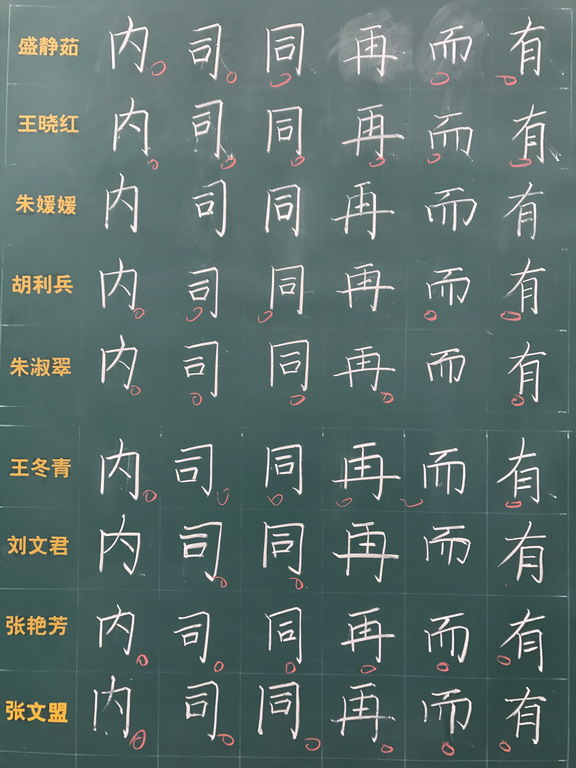 盛静茹 内 司 同 再 而 有
王晓红 内 司 同 再 而 有
朱媛媛 内 司 同 再 而 有
胡利兵 内 司 同 再 而 有
朱淑翠 内 司 同 再 而 有
王冬青 内 司 同 再 而 有
刘文君 内 司 同 再 而 有
张艳芳 内 司 同 再 而 有
张文盟 内 司 同 再 而 有